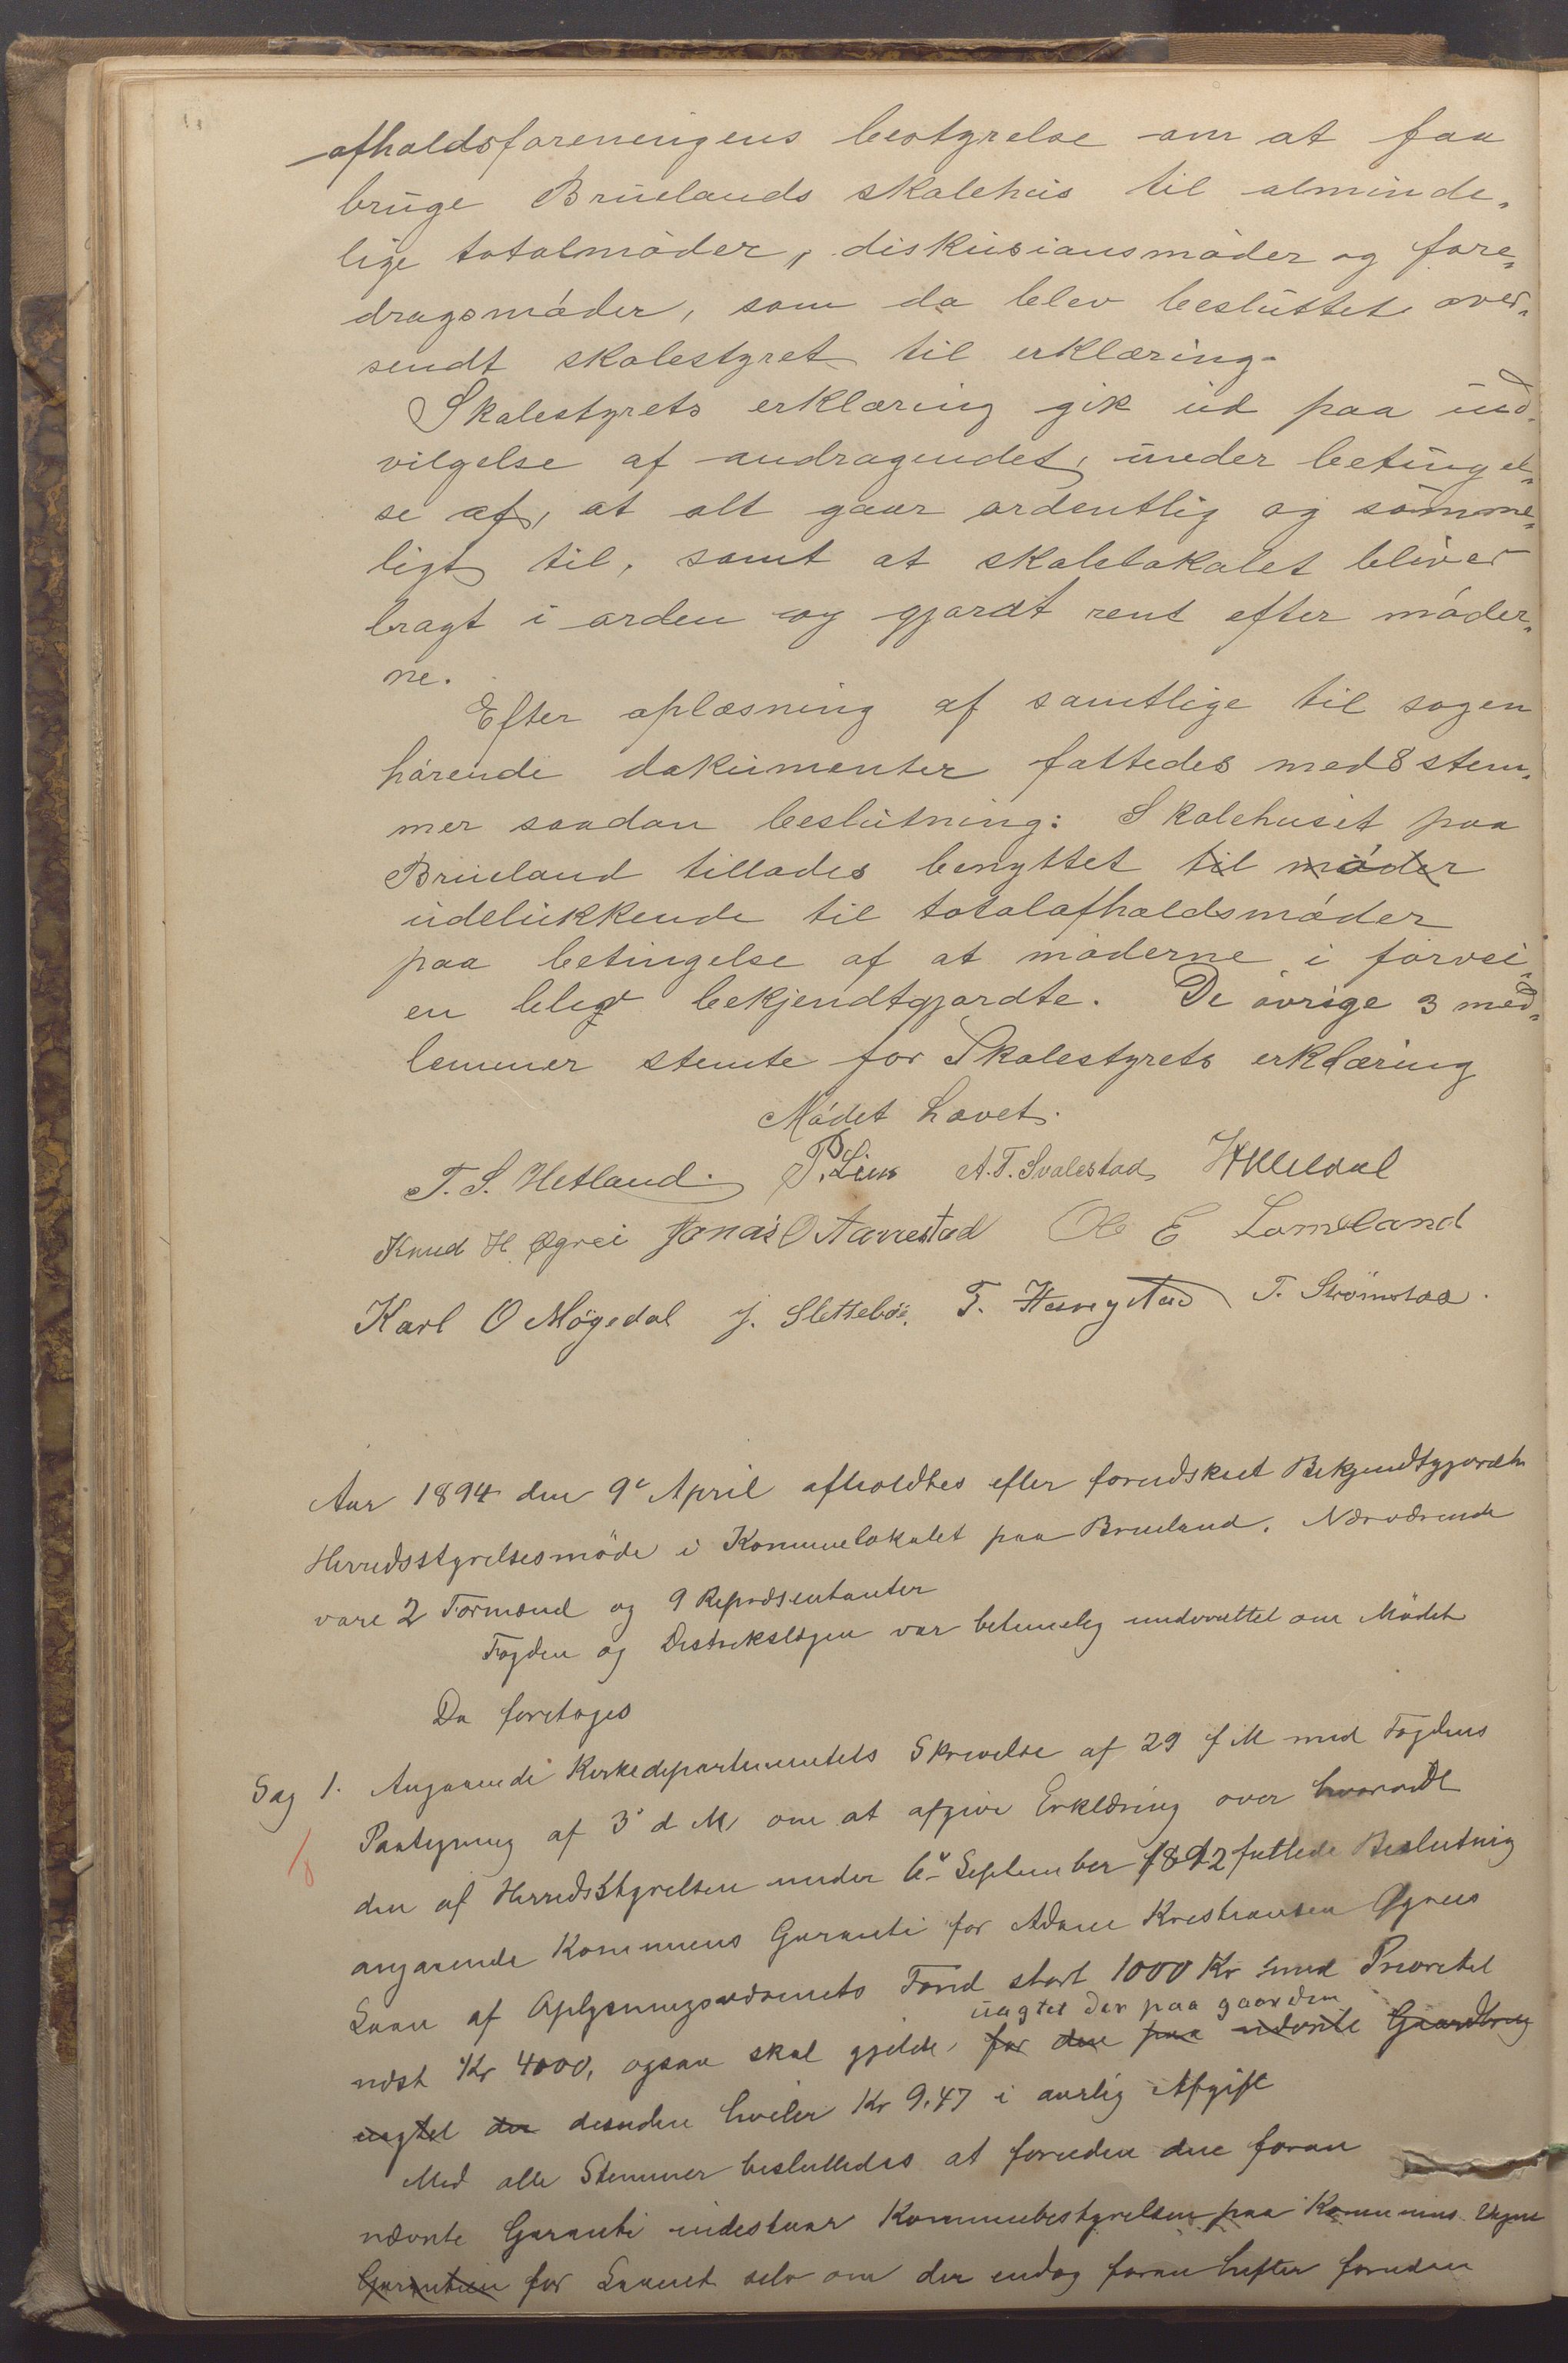 afholdsforeningens bestyrelse om at faa
bruge Bruelands skolehus til alminde„
lige totalmöder, diskusionsmöder og fore„
dragsmöder, som da blev besluttet over„
sendt skolestyret til erklæring.
Skolestyrets erklæring gik ud paa ind„
vilgelse af andragendet, under betingel„
se af, at alt gaar ordentlig og sömme„
ligt til, samt at skolelokalet bliver
bragt i orden og gjordt rent efter möder„
ne.
Efter oplæsning af samtlige til sagen
hörende dokumenter fattedes med 8 stem„
mer saadan beslutning: Skolehuset paa
Brueland tillades benyttet til möder
udelukkende til totalafholdsmöder
paa betingelse af at möderne i forvei„
en blev bekjendtgjordte. De övrige 3 med„
lemmer stemte for Skolestyrets erklæring
Mödet hævet.
T. S. Hetland. P. Lien A. T. Svalestad
Knud H. Øgrei Jonas O Aarrestad Ole E Lomeland
Karl O Mögedal J. Slettebö. T. Havrystad T. Strömstad.
Aar 1894 den 9e April afholdtes efter forudskeet Bekjendtgjørelse
Herredsstyrelsesmöde i Kommunelokalet paa Brueland. Nærværende
vare 2 Formænd og 9 Repræsentanter
Fogden og Distrikslægen var betimelig underrettet om Mödet
Da foretoges
Sag 1. Angaaende Kirkedepartementets Skrivelse af 29 f M med Fogdens
Paategning af 3' d M om at afgive Erklæring over hvorvidt
den af Herredsstyrelsen under 6- September 1892 fattede Beslutning
angaaende Kommunens Garanti for Adam Kristiansen Øgreis
Laan af Oplysningsvæsenets Fond stort 1000 Kr med Prioritet
uagtet der paa gaarden
næst Kr 4000, ogsaa skal gjelde, for den paa nævnte Gaardbrug
uagtet der desuden hviler Kr 9.47 i aarlig Afgift
Med alle Stemmer besluttedes at foruden den foran
nævnte Garanti indestaar Kommunebestyrelsen paa Kommunens Vegne
Garantien for Laanet selv om der endog foran hefter foruden